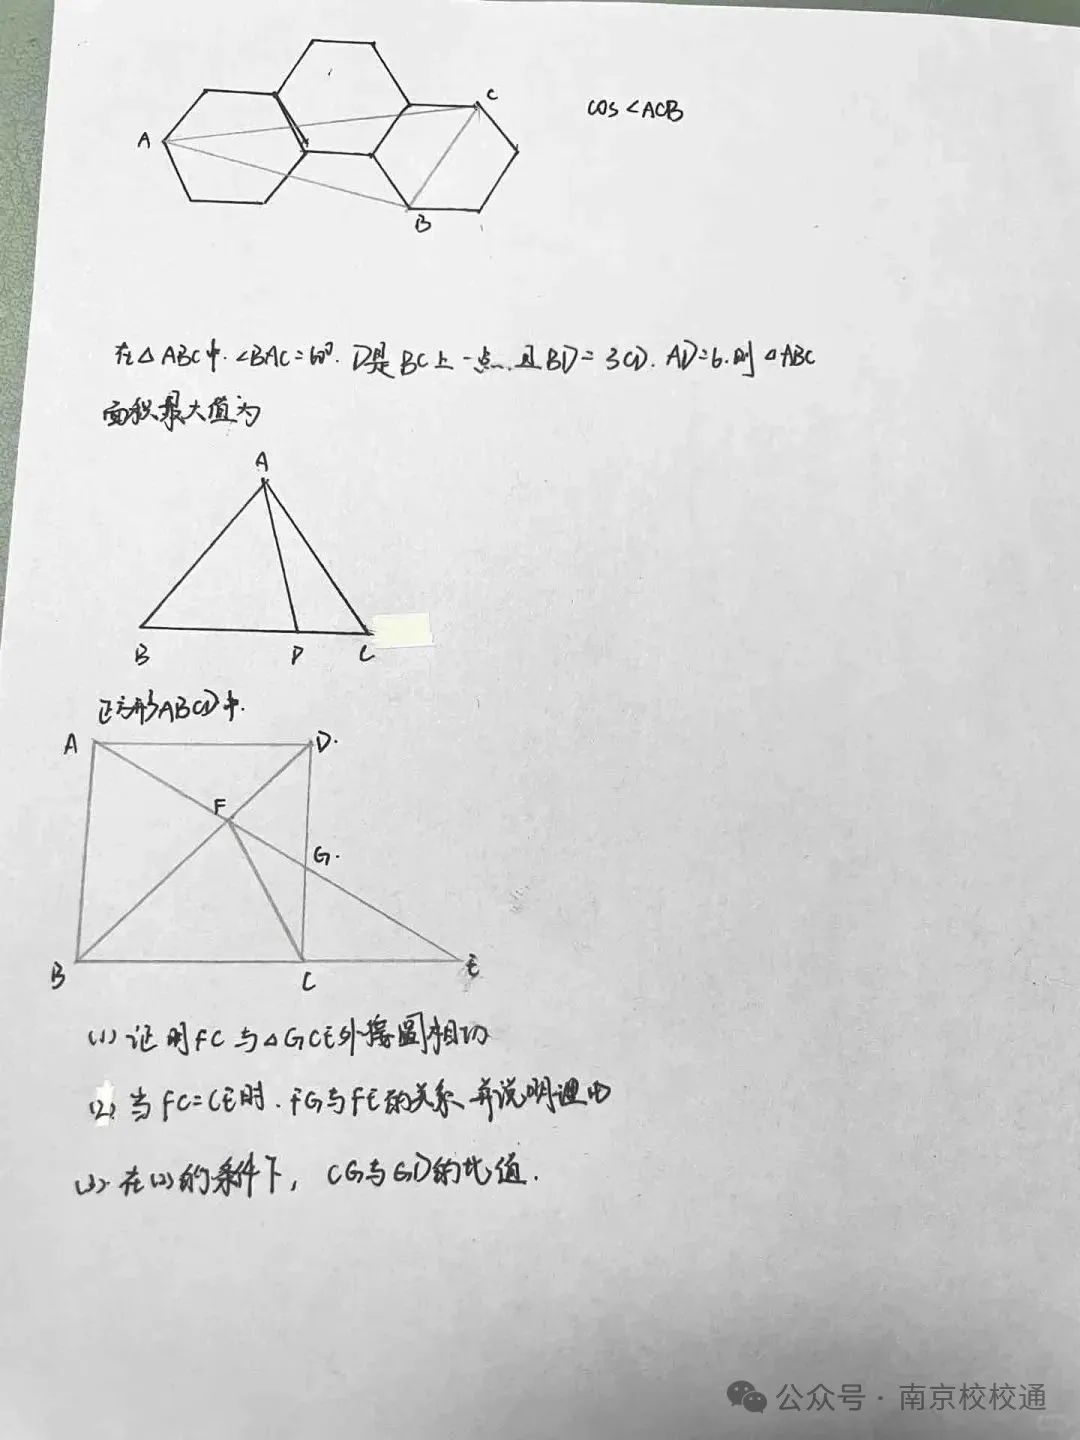 A
C
B
cos∠ACB
在△ABC中.∠BAC=60°.D是BC上一点.且BD=3CD.AD=6.则△ABC
面积最大值为
A
B D C
正方形ABCD中.
A D.
F
G.
B C E
(1)证明FC与△GCE外接圆相切
(2)当FC=CE时.FG与FE的关系并说明理由
(3)在(2)的条件下,CG与GD的比值.
公众号·南京校校通